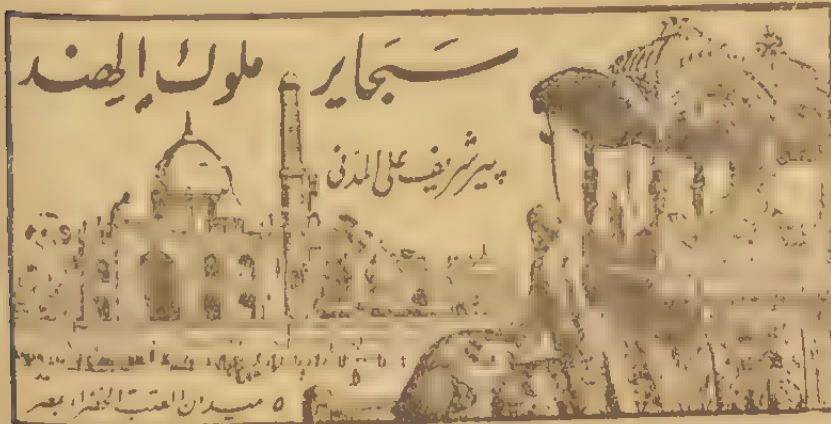 سجاير ملوك الهند
پيرشريف على المدنى
٥ ميدان العتبة الخضراء بمصر